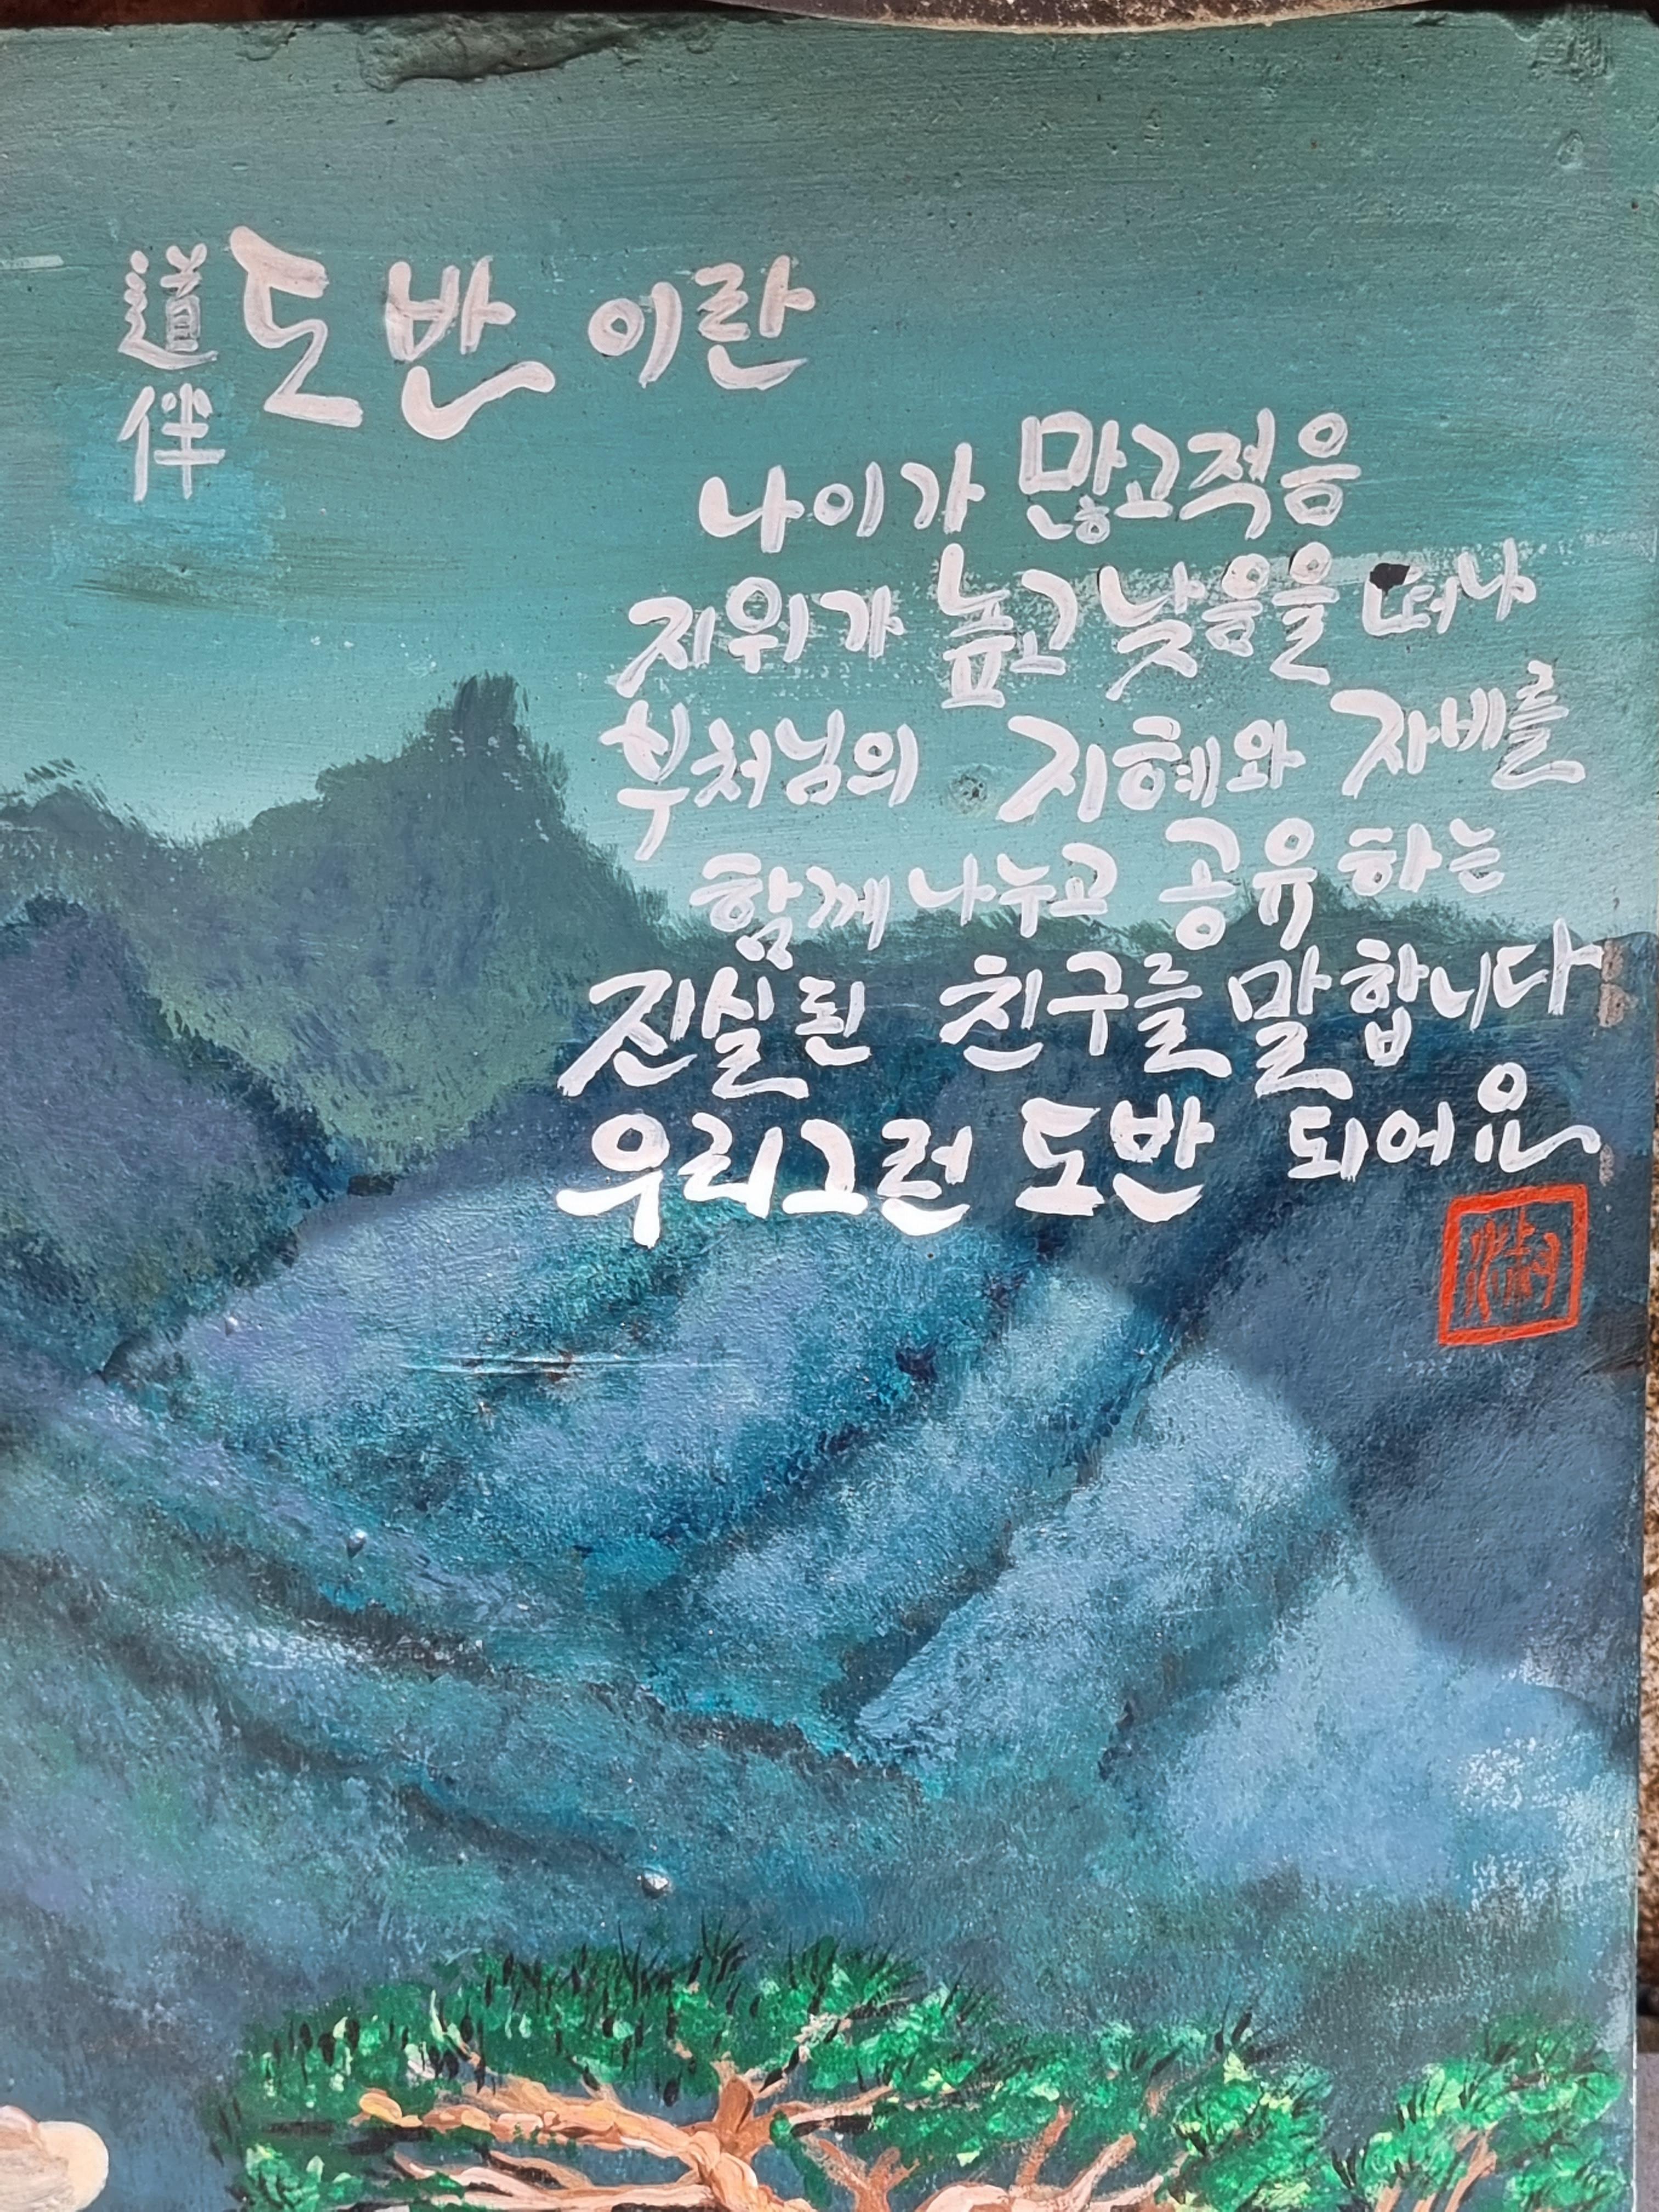 道伴
도반이란
나이가 많고적음
지위가 높고낮음을 떠나
부처님의 지혜와 자비를
함께 나누고 공유하는
진실된 친구를 말합니다
우리그런 도반 되어요